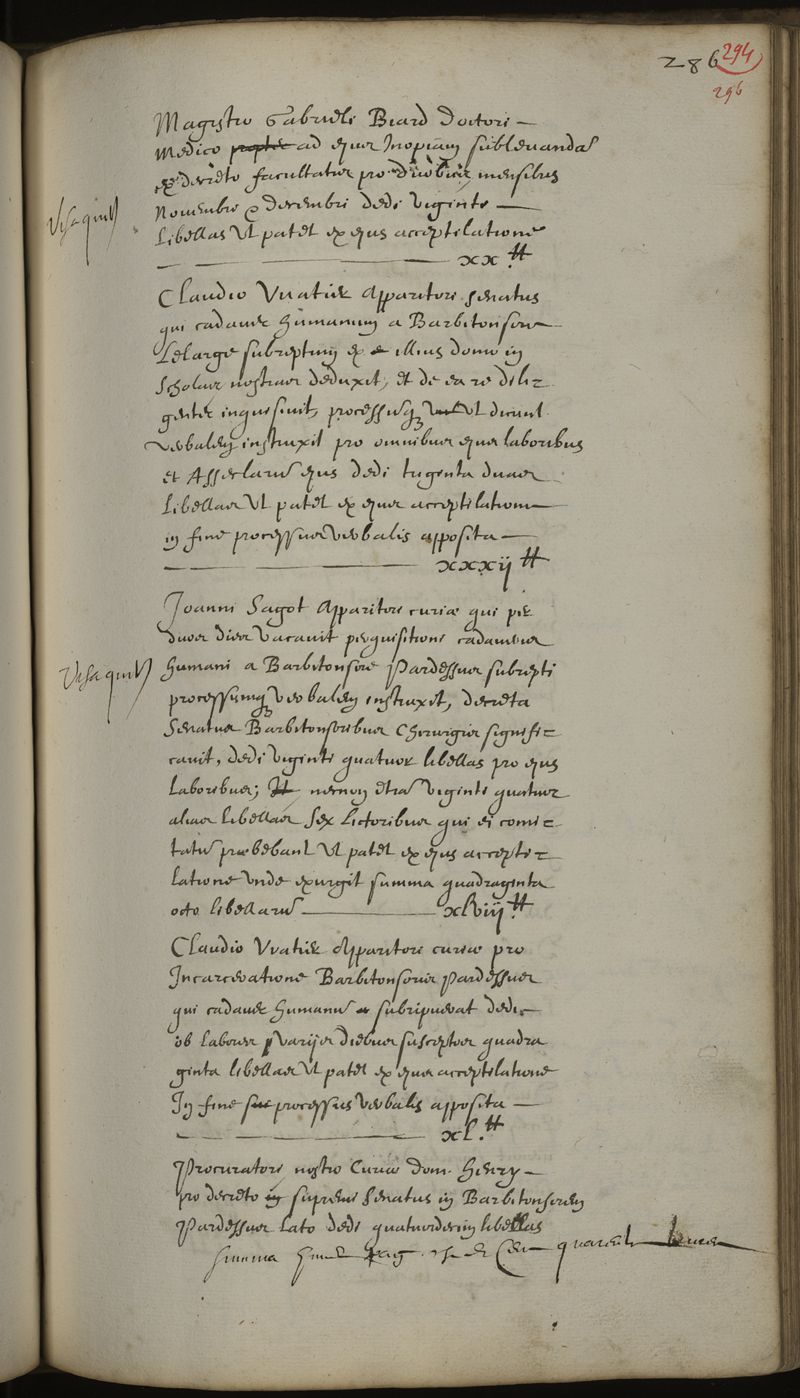 286 294
296
Magistro Gabrieli Biard Doctori
Medico propter ad ejus Inopiam sublevandā
ex decreto facultatis pro duobus mensibus
Novembri & decembri dedi viginti
Libellas Ut patet ex ejus acceptilatione
xx ₶
Claudio Vvatier Apparitori Senatus
qui cadaver humanum a Barbitonsore
Lelarge subreptum ex illius domo in
Scholas nostras deduxit, et de ea re dili=
genter inquisivit, processusq Ut dicunt
verbalem instruxit pro omnibus ejus laboribus
et Asseclarū ejus dedi triginta duas
Libellas Ut patet ex ejus acceptilatione
in fine processus verbalis apposita
xxxij ₶
Joanni Sagot Apparitori curiæ qui per
duos dies vacavit perquisitioni cadaveris
Visa quit
humani a Barbitonsore Pardessus subrepti
processumq verbalem instruxit, decreta
Senatus Barbitonsoribus Chirurgis signifi=
cavit, dedi viginti quatuor libellas pro ejus
Laboribus; It necnon etiā viginti quatuor
alias libellas sex Lictoribus qui ei comi=
tatū præbebant Ut patet ex ejus accepti=
latione Unde exurgit summa quadraginta
octo libellarū xlviij ₶
Claudio Vvatier Apparitori curiæ pro
Incarceratione Barbitonsoris Pardessus
qui cadaver humanū subripuerat dedi
ob Labores variis diebus susceptos quadra
ginta libellas Ut patet ex ejus acceptilatione
In fine processus verbalis apposita
xl ₶
Procuratori nostro Curiæ dom. Henry
pro decreto supremi Senatus in Barbitonsorem
Pardessus Lato dedi quatuordecim libellas
summa